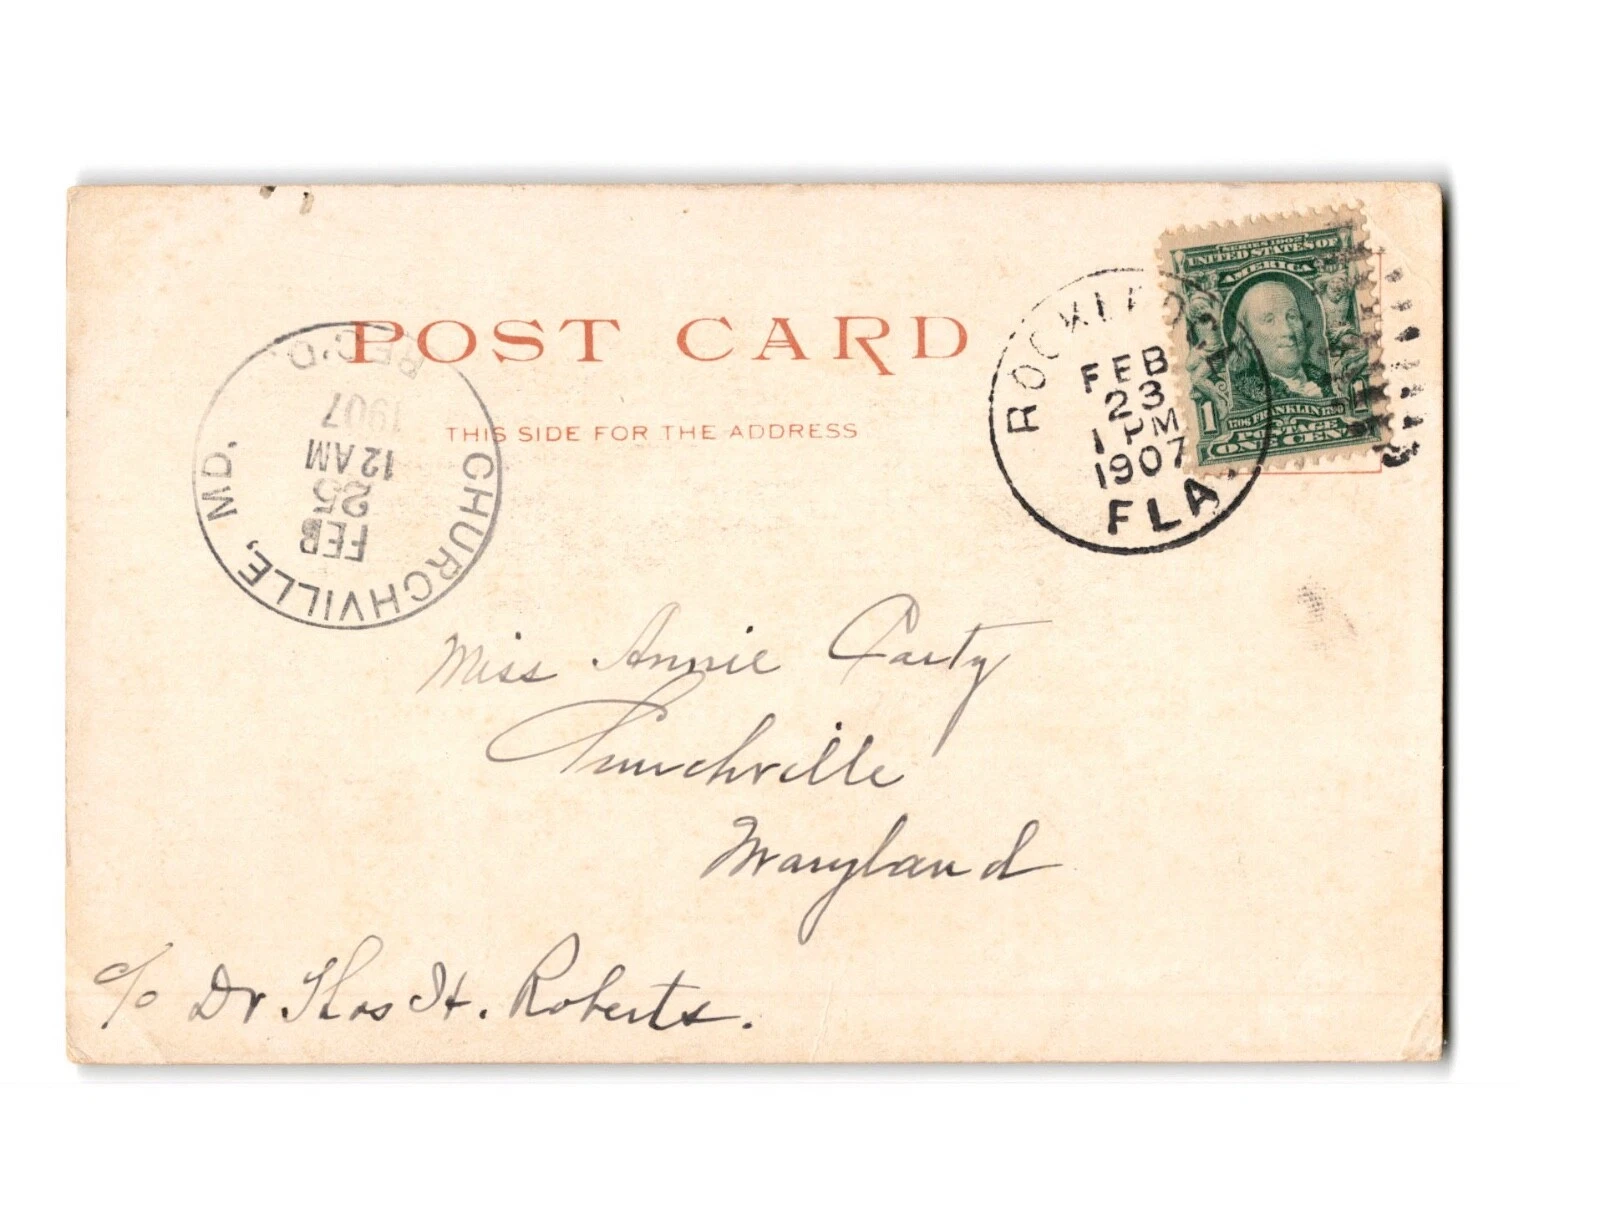 POST CARD
THIS SIDE FOR THE ADDRESS
SERIES 1902
UNITED STATES OF
AMERICA
1 1
1706 FRANKLIN 1790
POSTAGE
ONE CENT
FEB
23
1 PM
1907
FLA.
REC'D.
1907
12 AM
25
FEB
CHURCHVILLE, MD.
Miss Annie Carty
Churchville
Maryland
c/o Dr Thos H. Roberts.